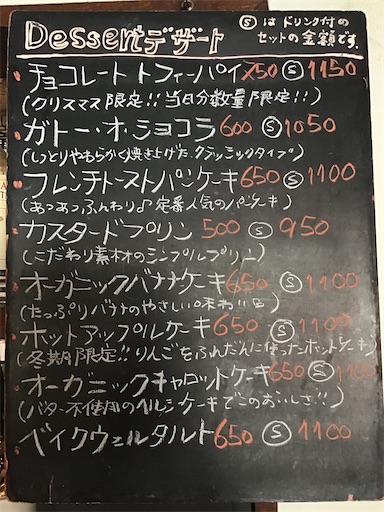 Dessertデザート
Ⓢはドリンク付の
セットの金額です。
チョコレートトファーパイ 750 Ⓢ 1150
(クリスマス限定!!当日分数量限定!!)
ガトー・オ・ショコラ 600 Ⓢ 1050
(しっとりやわらかく焼き上げた クラッシックタイプ)
フレンチトーストパンケーキ 650 Ⓢ 1100
(あつあつふんわり♪定番人気のパンケーキ)
カスタードプリン 500 Ⓢ 950
(こだわり素材のシンプルプリン)
オーガニックバナナケーキ 650 Ⓢ 1100
(たっぷりバナナのやさしい味わい)
ホットアップルケーキ 650 Ⓢ 1100
(冬期限定!!りんごをふんだんに使ったホットケーキ)
オーガニックキャロットケーキ 650 Ⓢ 1100
(バター不使用のヘルシーケーキでこのおいしさ!!)
ベイクウェルタルト 650 Ⓢ 1100